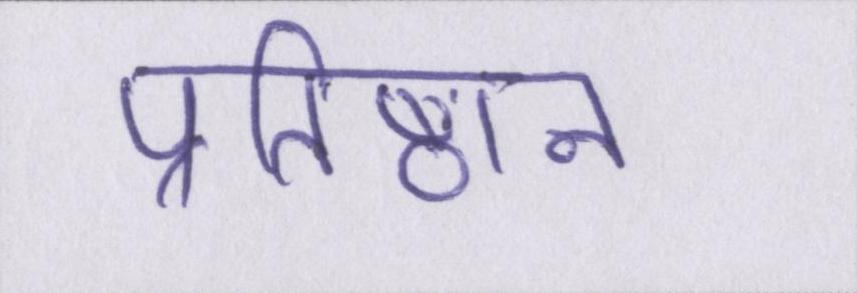 प्रतिष्ठान